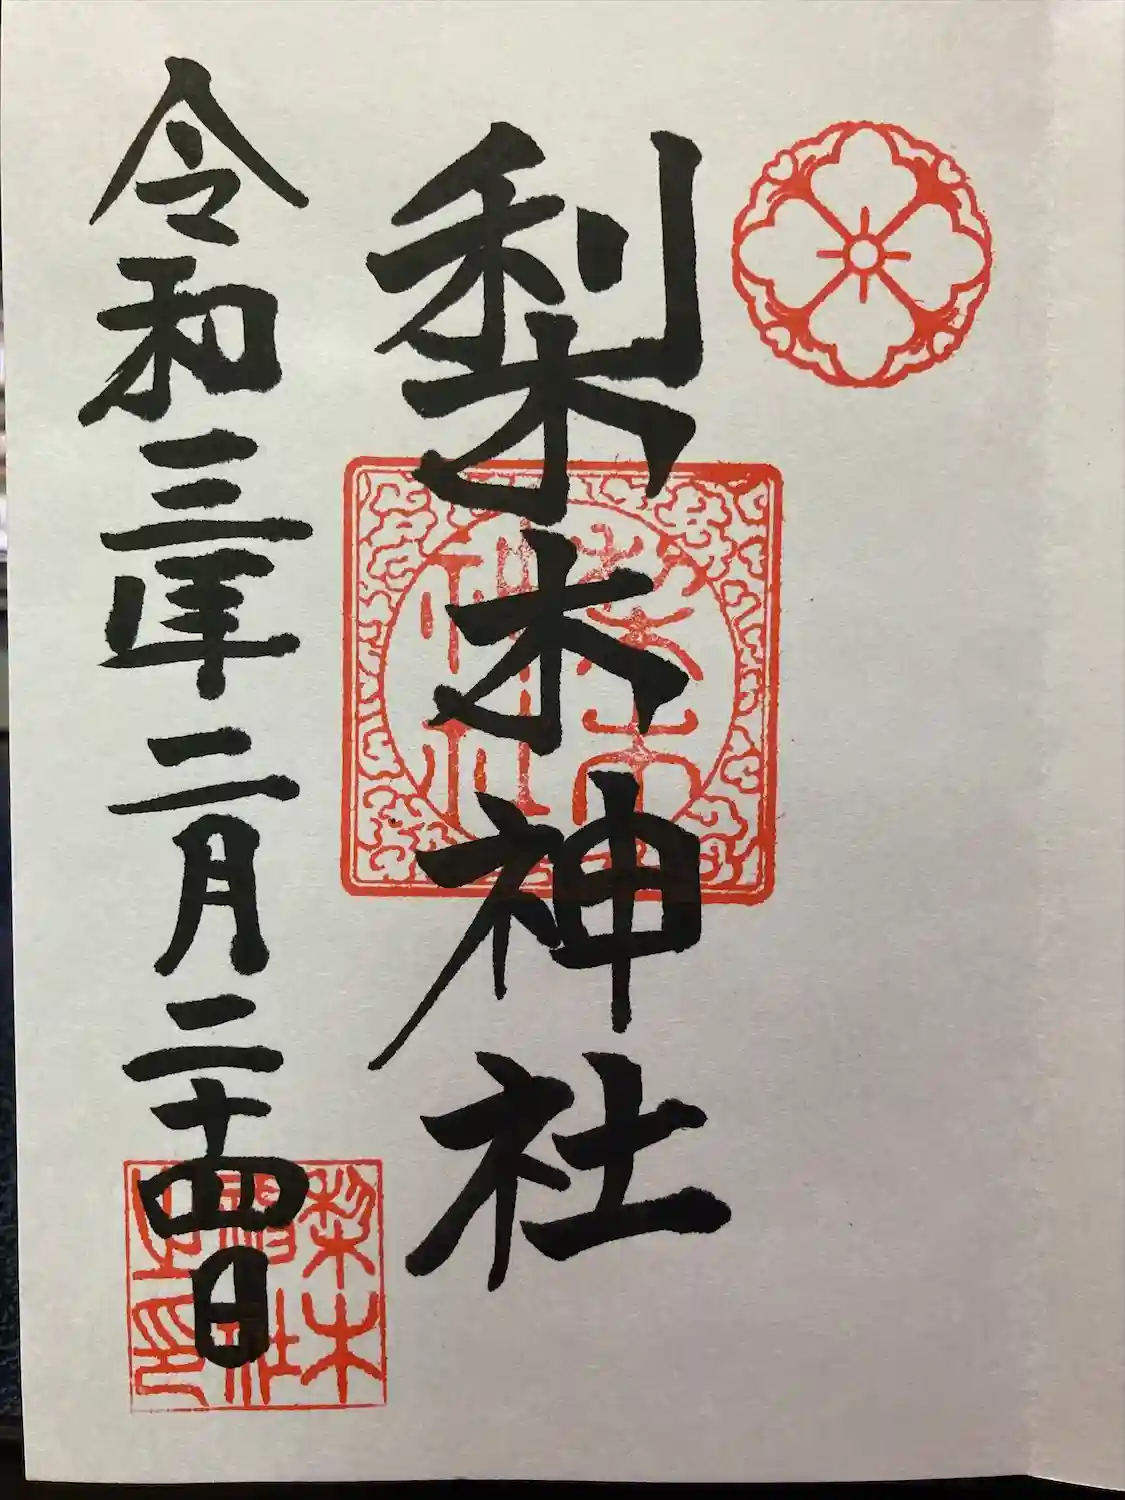 梨木神社
令和三年二月二十四日
梨木
神社
梨木
神社
之印